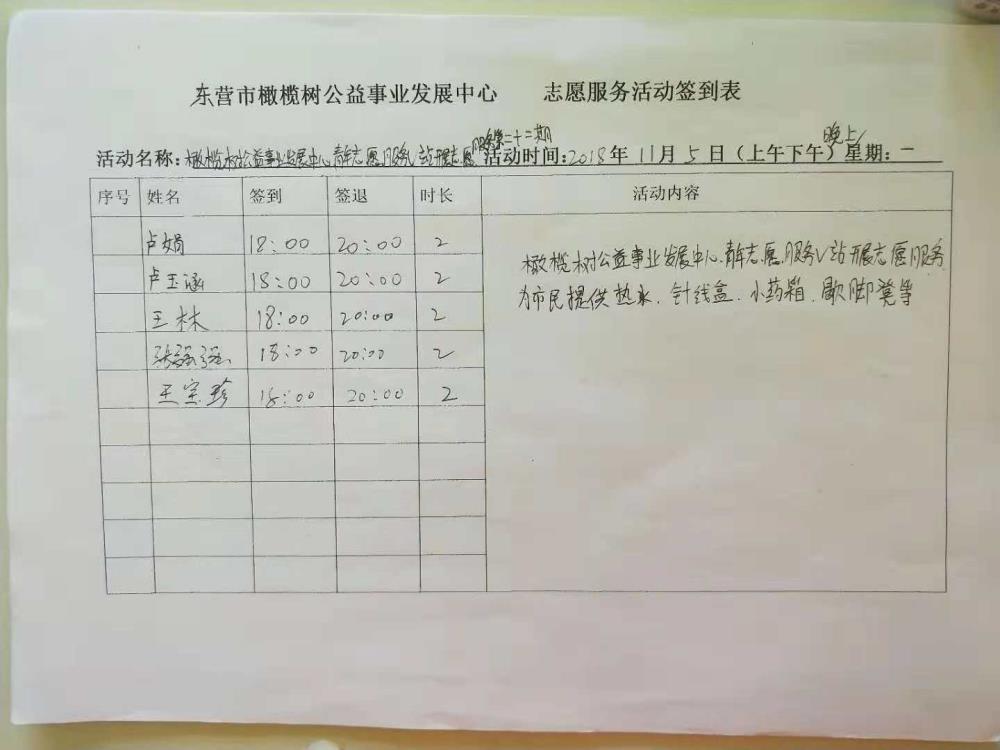 东营市橄榄树公益事业发展中心 志愿服务活动签到表
活动名称：橄榄树公益事业发展中心青年志愿服务站开展志愿服务第二十二期 活动时间：2018年11月5日（上午下午）晚上 星期：一
序号 姓名 签到 签退 时长 活动内容
卢娟 18:00 20:00 2
卢玉涵 18:00 20:00 2
王林 18:00 20:00 2
张强强 18:00 20:00 2
王宝珍 18:00 20:00 2
橄榄树公益事业发展中心青年志愿服务站开展志愿服务
为市民提供热水、针线盒、小药箱、歇脚凳等